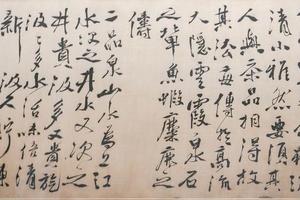 清小雅然要須其
人與茶品相得故
其法每傳於高流
大隱雲霞泉石
之輩魚蝦麋鹿之
儔
二品泉山水為上江
水次之井水又次之
井貴汲多又貴旋
汲汲多水活味倍清
新汲久貯陳